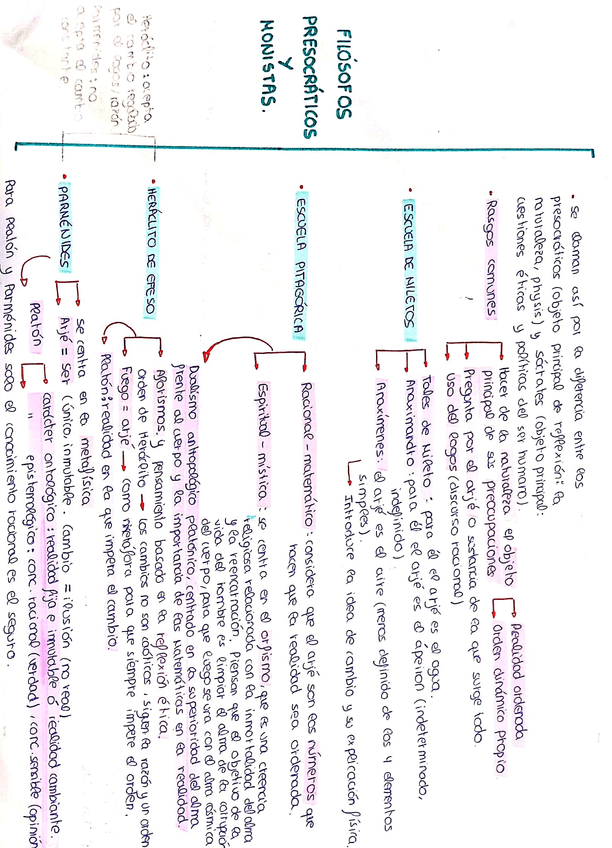 FILÓSOFOS
PRESOCRÁTICOS
Y
MONISTAS.
• Se llaman así por la diferencia entre los
presocráticos (objeto principal de reflexión: la
naturaleza, physis) y sócrates (objeto principal:
cuestiones éticas y políticas del ser humano).
• Rasgos comunes
Hacer de la naturaleza el objeto
principal de sus preocupaciones
Realidad ordenada
Orden dinámico propio.
Pregunta por el arjé o sustancia de la que surge todo.
Uso del logos (discurso racional)
• ESCUELA DE MILETOS
Tales de Mileto: para él el arjé es el agua.
Anaximandro: para él el arjé es el ápeiron (indeterminado,
indefinido).
Anaxímenes: el arjé es el aire (menos definido de los 4 elementos
simples).
Introduce la idea de cambio y su explicación física.
• ESCUELA PITAGÓRICA
Racional-matemático: considera que el arjé son los números que
hacen que la realidad sea ordenada.
Espiritual-mística: se centra en el orfismo, que es una creencia
religiosa relacionada con la inmortalidad del alma
y la reencarnación. Piensan que el objetivo de la
vida del hombre es limpiar el alma de la corrupció
del cuerpo, para que luego se una con el alma cósmica
Dualismo antropológico platónico, centrado en la superioridad del alma
frente al cuerpo y la importancia de las matemáticas en la realidad.
• HERÁCLITO DE EFESO
Aforismos, y pensamiento basado en la reflexión ética.
Orden de Heráclito → los cambios no son caóticos, siguen la razón y un orden
Fuego = arjé → como metáfora para que siempre impere el orden.
Platón: realidad en la que impera el cambio.
Heráclito: acepta
el cambio regulado
por el logos/razón
Parménides: no
acepta el cambio
constante
• PARMÉNIDES
Se centra en la metafísica
Arjé = Ser (único, inmutable. Cambio = ilusión (no real)
Platón
carácter ontológico: realidad fija e inmutable ó realidad cambiante.
" epistemológico: conc. racional (verdad), conc. sensible (opinión
Para Platón y Parménides solo el conocimiento racional es el seguro.